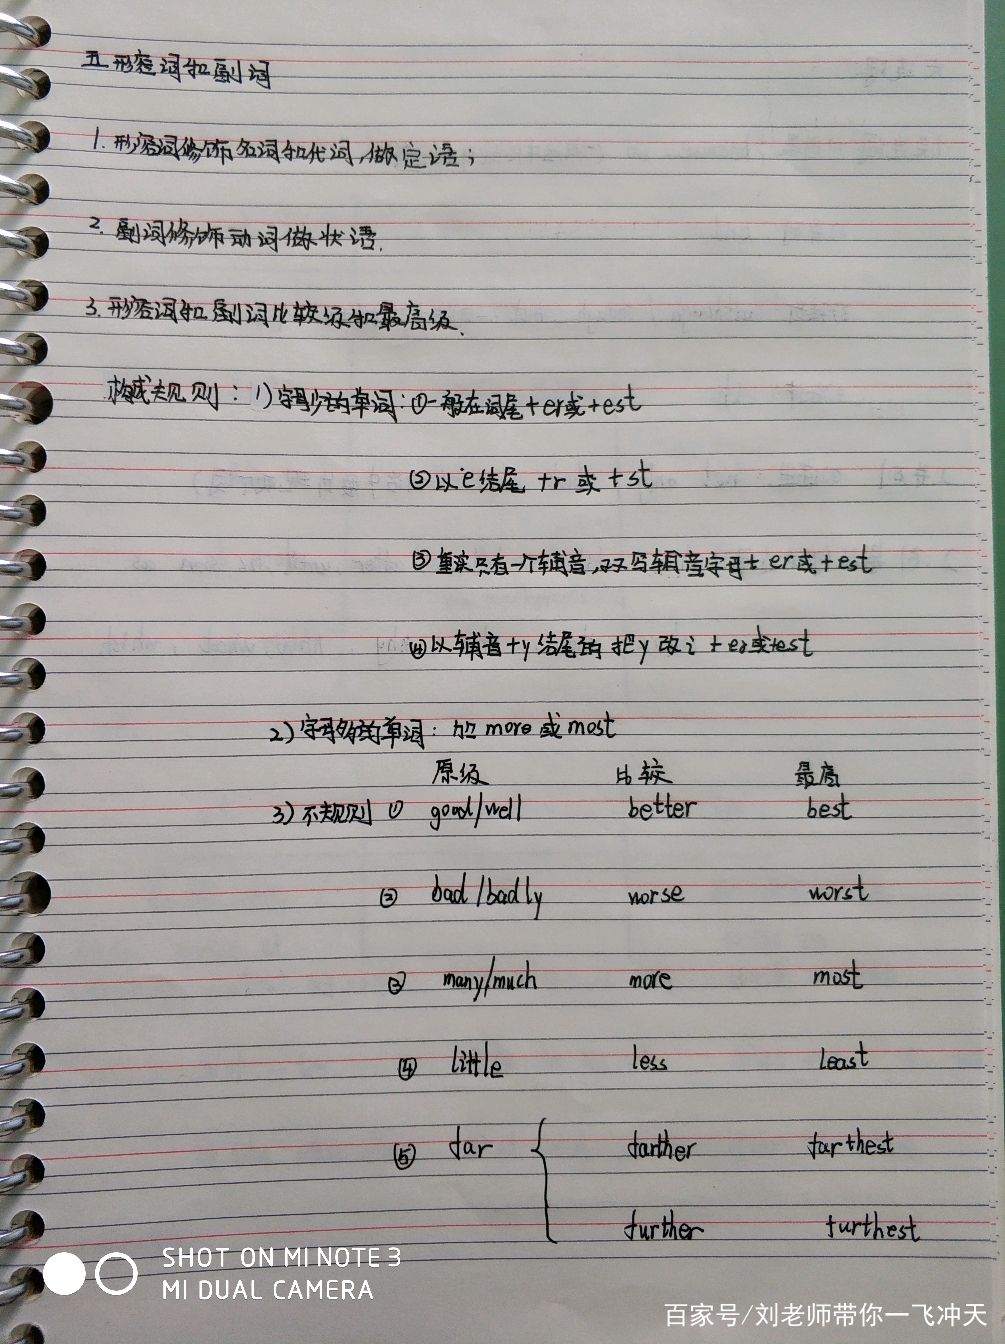 五形容词和副词
1. 形容词修饰名词和代词,做定语;
2. 副词修饰动词做状语.
3. 形容词和副词比较级和最高级.
构成规则: 1) 字母少的单词: ①一般在词尾+er或+est
②以e结尾 +r 或 +st
③重读只有一个辅音,双写辅音字母+er或+est
④以辅音+y结尾的 把y改i +er或+est
2) 字母多的单词: 加 more 或 most
原级 比较 最高
3) 不规则 ① good/well better best
② bad/badly worse worst
③ many/much more most
④ little less least
⑤ far farther farthest
further furthest
SHOT ON MI NOTE 3
MI DUAL CAMERA
百家号/刘老师带你一飞冲天